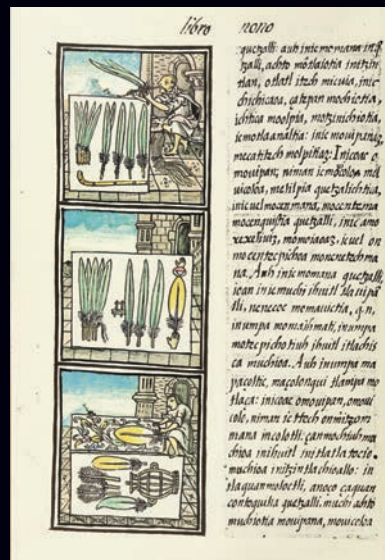 libro nono
quetzalli: auh inic momana in q
tzalli, achto motlalotia in itzin
tlan, otlatl itech micuia, inic
chichicaoa, çatepan mochiotia,
ichtica moolpia, motzinichiotia,
icmotlaanaltia: inic mouipanaz,
mecatitech molpitiaz: Inicoac o
mouipan, niman ic mocoloa, mel
uicoloa, metilpia quetzalichtia,
inic uel mocenmana, mocentema
mocenquistia quetzalli, inic amo
xexeliuiz, momoiaoaz, ic uel on
mocentepichoa monenetechma
na. Auh inic momana quetzalli,
ioan in ie muchi ihuitl tlauipa
lli, nenecoc memauictia, q.n,
in umpa momaihmati, in umpa
motzepichotiuh ihuitl itlachis
ca muchioa. Auh in umpa ma
pacoltic, maçolonqui tlampa mo
tlaça: inicoac omouipan, omoui
colo, niman ic itech onmitzom
mana in colotli: çan moch iuh mu
chioa in ihuitl in itlatlatocio.
muchioa in itzintlachioallo: in
tlaquammoloctli, anoço caquan
contoquilia quetzalli. muchi achto
muchiotia mouipana, mouicoloa